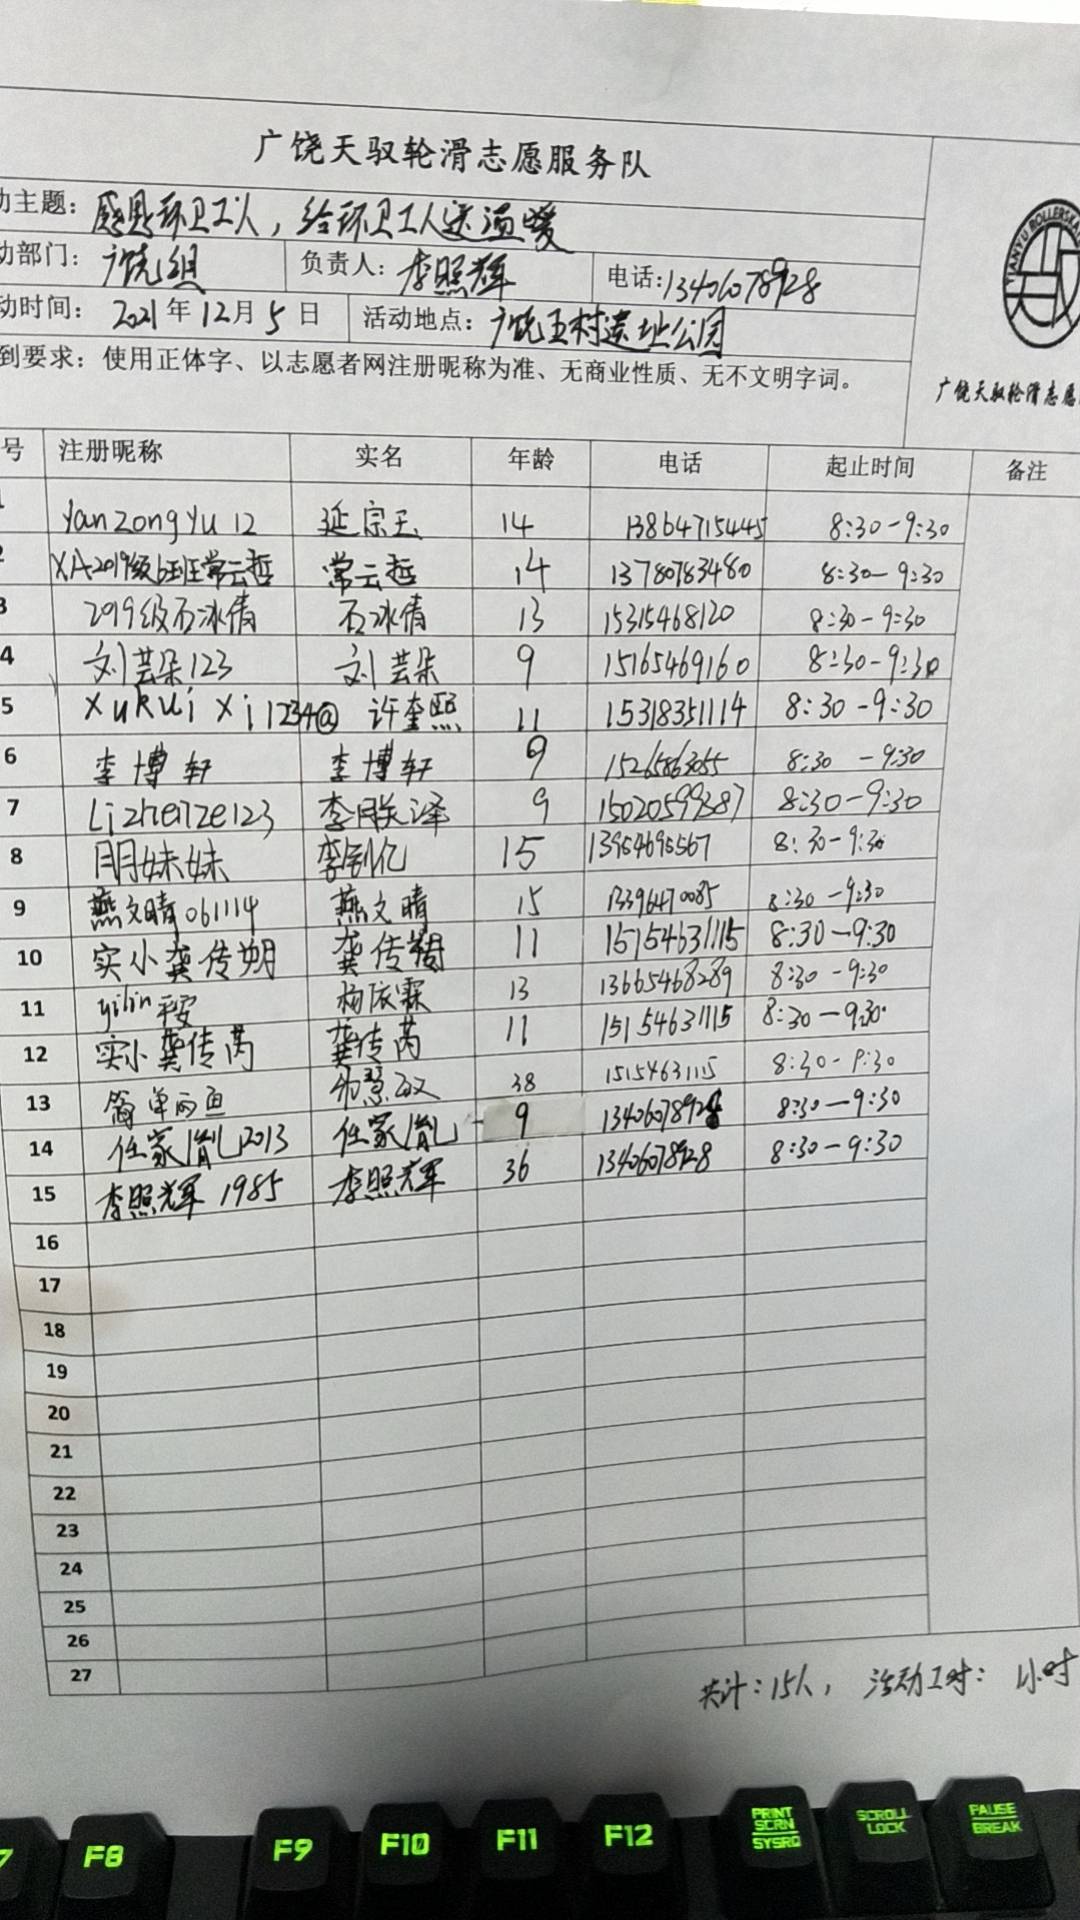 广饶天驭轮滑志愿服务队
动主题：感恩环卫工人，给环卫工人送温暖
动部门：广饶组 负责人：李照辉 电话：13406078928
动时间：2021年12月5日 活动地点：广饶五村遗址公园
到要求：使用正体字、以志愿者网注册昵称为准、无商业性质、无不文明字词。
TIANYU ROLLERSKA
广饶天驭轮滑志愿
号 注册昵称 实名 年龄 电话 起止时间 备注
1 yanzongyu12 延宗玉 14 13864715445 8:30-9:30
2 XA2019级6班常云哲 常云哲 14 13780783480 8:30-9:30
3 2019级石冰倩 石冰倩 13 15315468120 8:30-9:30
4 刘芸朵123 刘芸朵 9 15165469160 8:30-9:30
5 xukuixi1234@ 许奎熙 11 15318351114 8:30-9:30
6 李博轩 李博轩 9 15265863055 8:30-9:30
7 Lizhenze123 李朕泽 9 15020599387 8:30-9:30
8 朋妹妹 李钊亿 15 13954695567 8:30-9:30
9 燕文晴061114 燕文晴 15 13396470085 8:30-9:30
10 实小龚传朔 龚传朔 11 15154631115 8:30-9:30
11 yilin平安 杨依霖 13 13665468289 8:30-9:30
12 实小龚传芮 龚传芮 11 15154631115 8:30-9:30
13 简单的鱼 38 15154631115 8:30-9:30
14 任家胤2013 任家胤 9 13406078928 8:30-9:30
15 李照辉1985 李照辉 36 13406078928 8:30-9:30
16
17
18
19
20
21
22
23
24
25
26
27
共计：15人，活动工时：1小时
7 F8 F9 F10 F11 F12 PRINT SCRN SYSRQ SCROLL LOCK PAUSE BREAK